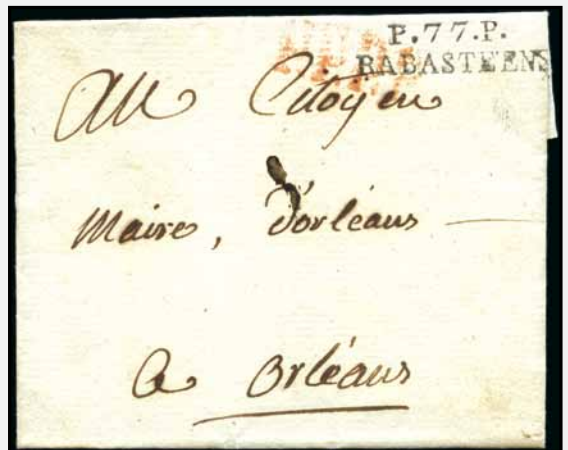 P.77.P.
RABASTEENS
Au Citoyen
Maire, d'orléans
a Orléans